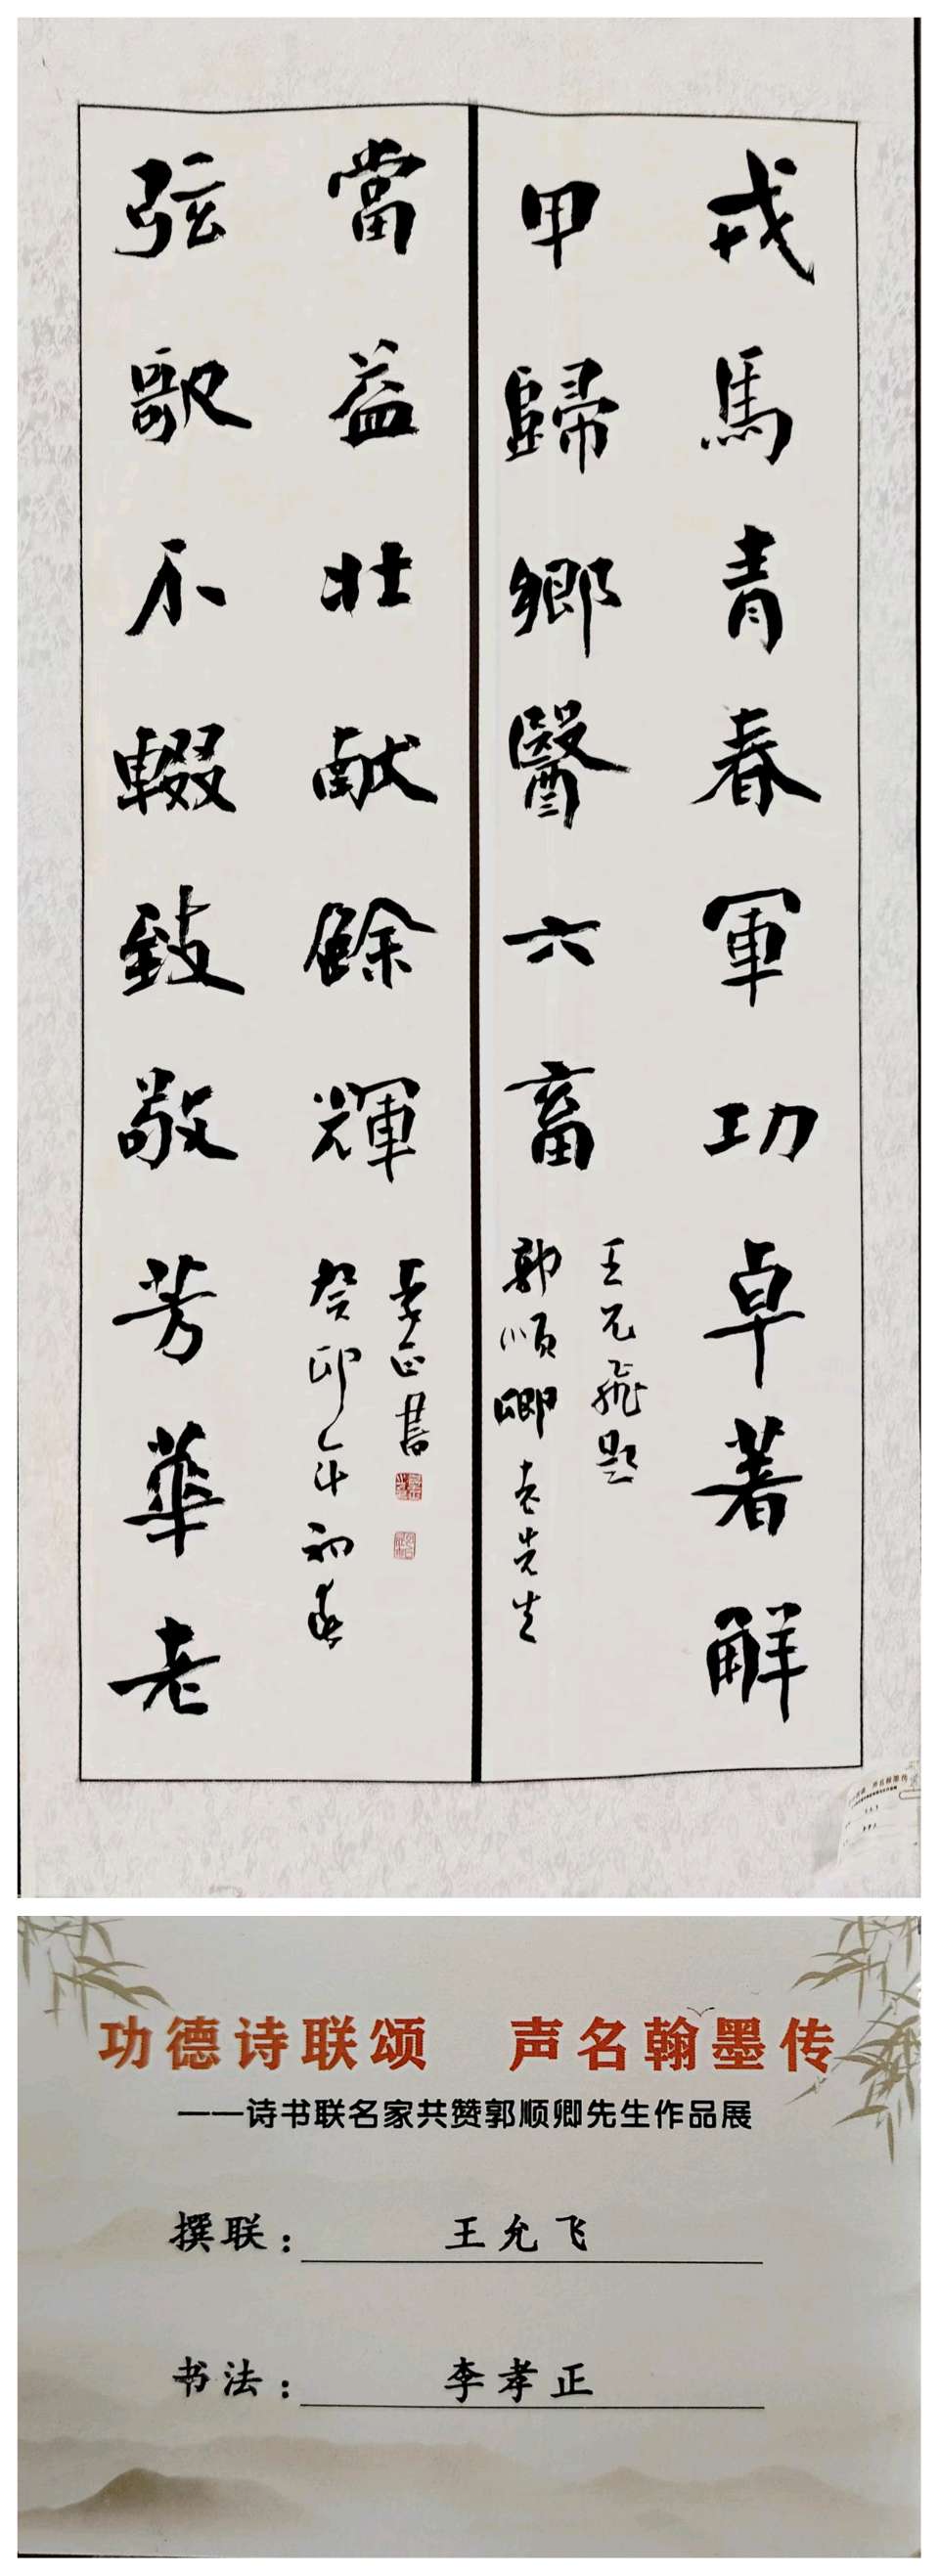 戎馬青春軍功卓著解
甲歸鄉醫六畜
王允飛題
郭順卿老先生
弦歌不輟致敬芳華老
當益壯献餘輝
癸卯年初春
孝正書
声名翰墨传
功德诗联颂 声名翰墨传
——诗书联名家共赞郭顺卿先生作品展
撰联：王允飞
书法：李孝正